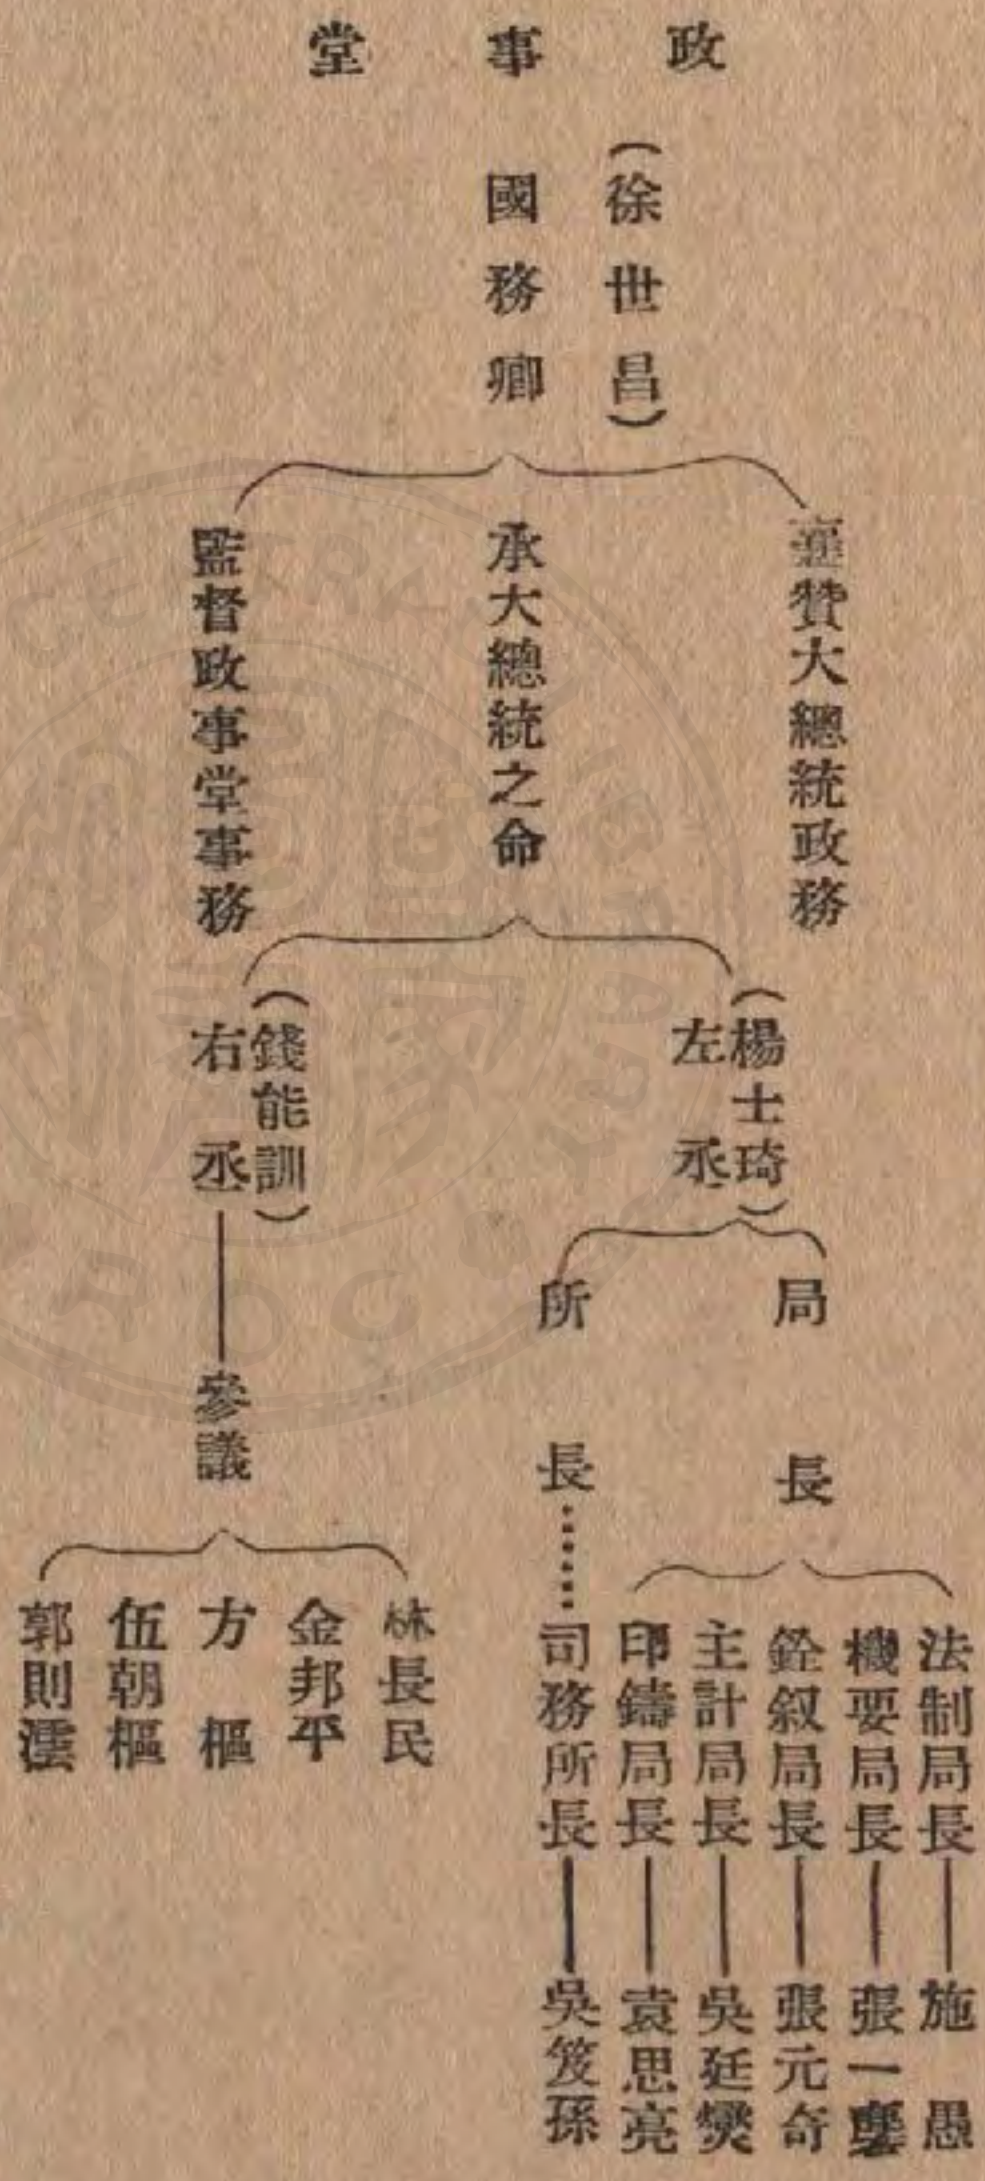 政事堂
(徐世昌)
國務卿
贊大總統政務
承大總統之命
監督政事堂事務
(楊士琦)
左丞
(錢能訓)
右丞
局長
所長
參議
法制局長——施愚
機要局長——張一麐
銓叙局長——張元奇
主計局長——吳廷燮
印鑄局長——袁思亮
司務所長——吳笈孫
林長民
金邦平
方樞
伍朝樞
郭則澐